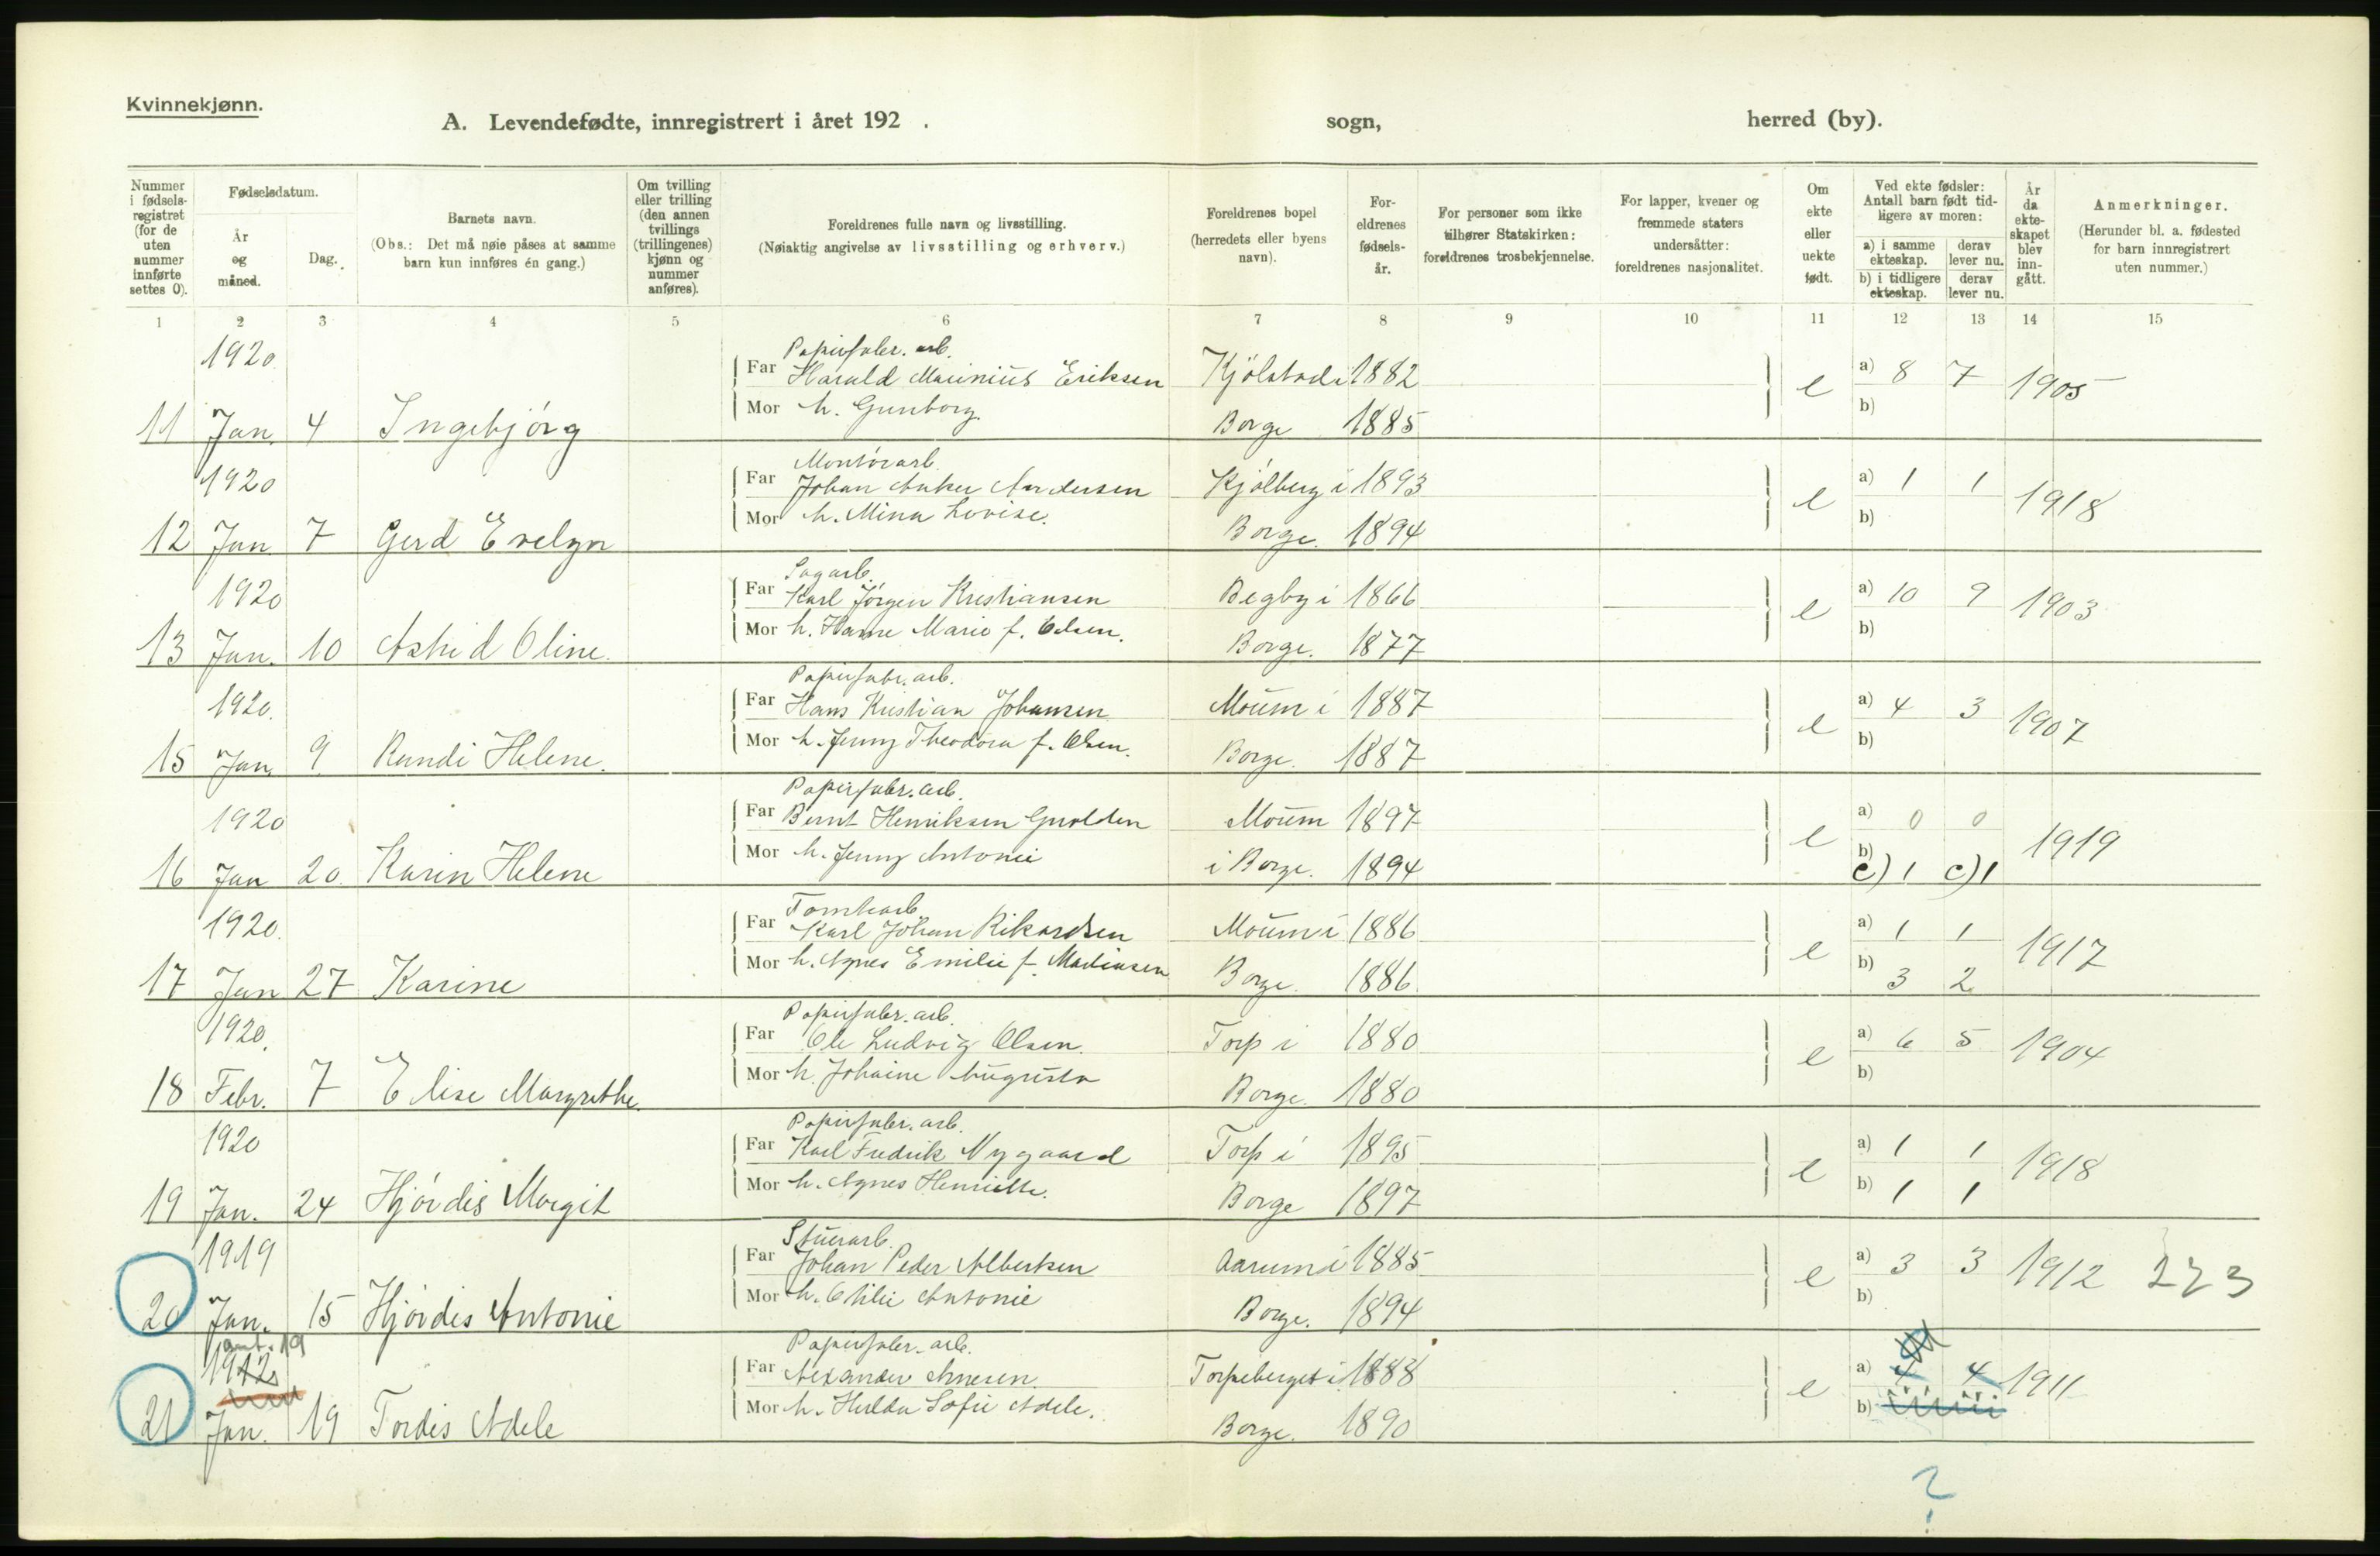 Kvinnekjønn.
A. Levendefødte, innregistrert i året 192 . sogn, herred (by).
Nummer i fødsels-registret (for de uten nummer innførte settes 0).
Fødselsdatum.
År og måned.
Dag.
Barnets navn.
(Obs.: Det må nøie påses at samme barn kun innføres én gang.)
Om tvilling eller trilling (den annen tvillings (trillingenes) kjønn og nummer anføres).
Foreldrenes fulle navn og livsstilling.
(Nøiaktig angivelse av livsstilling og erhverv.)
Foreldrenes bopel (herredets eller byens navn).
For-eldrenes fødsels-år.
For personer som ikke tilhører Statskirken: foreldrenes trosbekjennelse.
For lapper, kvener og fremmede staters undersåtter: foreldrenes nasjonalitet.
Om ekte eller uekte født.
Ved ekte fødsler: Antall barn født tid-ligere av moren:
a) i samme ekteskap. derav lever nu.
b) i tidligere ekteskap. derav lever nu.
År da ekte-skapet blev inn-gått.
Anmerkninger.
(Herunder bl. a. fødested for barn innregistrert uten nummer.)
1 2 3 4 5 6 7 8 9 10 11 12 13 14 15
1920 Papirfabr. arb.
Far Harald Marinius Eriksen Kjölstad i 1882 e a) 8 7 1905
Mor h. Gunborg. Borge 1885 b)
11 Jan. 4 Ingebjörg
1920 Montörarb.
Far Johan Anker Andersen Kjölberg i 1893 e a) 1 1 1918
Mor h. Mina Lovise. Borge. 1894 b)
12 Jan 7 Gerd Evelyn
1920 Sagarb.
Far Karl Jörgen Kristiansen Begby i 1866 e a) 10 9 1903
Mor h. Hanne Marie f. Olsen. Borge. 1877 b)
13 Jan. 10 Astrid Oline.
1920. Papirfabr. arb.
Far Hans Kristian Johansen Moum i 1887 e a) 4 3 1907
Mor h. Jenny Theodora f. Olsen. Borge. 1887 b)
15 Jan. 9 Randi Helene.
1920 Papirfabr. arb.
Far Bernt Henriksen Moum 1897 e a) 0 0 1919
Mor h. Jenny Antonie i Borge. 1894 b)
c) 1 c) 1
16 Jan 20. Karin Helene
1920. Tomtearb.
Far Karl Johan Rikardsen Moum i 1886 e a) 1 1 1917
Mor h. Agnes Emilie f. Martinsen Borge. 1886 b) 3 2
17 Jan 27 Karine
1920. Papirfabr. arb.
Far Ole Ludvig Olsen. Torp i 1880 e a) 6 5 1904
Mor h. Johaine Augusta Borge. 1880 b)
18 Febr. 7 Elise Margrethe.
1920 Papirfabr. arb.
Far Karl Fredrik Nygaard Torp i 1895 e a) 1 1 1918
Mor h. Agnes Henriette. Borge 1897 b) 1 1
19 Jan. 24 Hjördis Margit
1919 Stuerarb.
Far Johan Peder Albertsen Aarum i 1885 e a) 3 3 1912 223
Mor h. Otilie Antonie Borge. 1894 b)
20 Jan. 15 Hjördis Antonie
ant. 19
1912 Papirfabr. arb.
Far Alexander Arnesen. Torpeberget i 1888 e a) 4 4 1911
Mor h. Hulda Sofie Adele. Borge. 1890 b)
21 Jan. 19 Tordis Adele
?